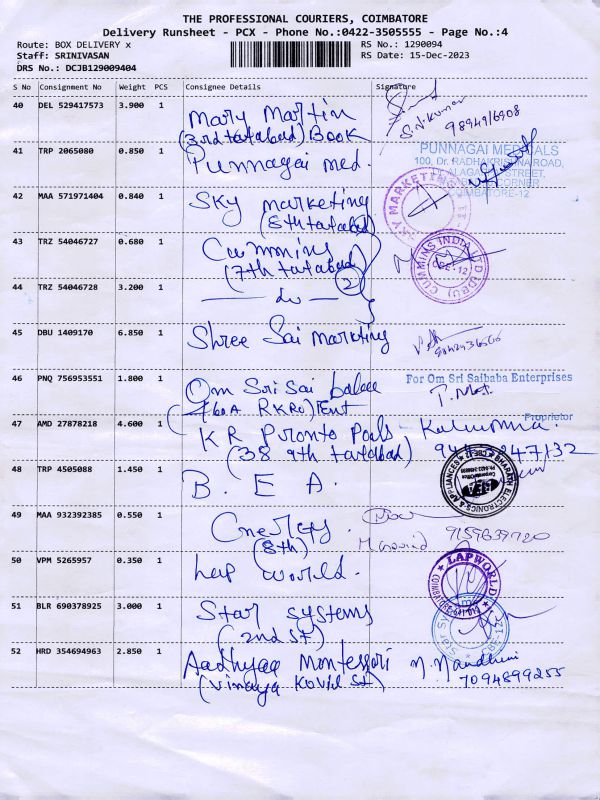 THE PROFESSIONAL COURIERS, COIMBATORE
Delivery Runsheet - PCX - Phone No.:0422-3505555 - Page No.:4
Route: BOX DELIVERY x
RS No.: 1290094
Staff: SRINIVASAN
RS Date: 15-Dec-2023
DRS No.: DCJB129009404
S No Consignment No Weight PCS Consignee Details Signature
40 DEL 529417573 3.900 1 Mary Martin
(3rd tatabad) Book
S.N.Kumar
9894916908
41 TRP 2065080 0.850 1 Punnagai med.
PUNNAGAI MEDICALS
100, Dr. RADHAKRISHNA ROAD,
STREET,
CORNER
COIMBATORE-12
42 MAA 571971404 0.840 1 Sky marketing
(8th tatabad)
SKY MARKETING
43 TRZ 54046727 0.680 1 Cummins
(7th tatabad)
CUMMINS INDIA
CBE-12
44 TRZ 54046728 3.200 1 — do — 2
45 DBU 1409170 6.850 1 Shree Sai Markting
46 PNQ 756953551 1.800 1 Om Sri Sai balaee
For Om Sri Saibaba Enterprises
Proprietor
47 AMD 27878218 4.600 1 K R Pronto Pals
(38 9th tatabad)
48 TRP 4505088 1.450 1 B. E A.
BHARATH ELECTRONICS & APPLIANCES
BEA
49 MAA 932392385 0.550 1 Energy.
(8th)
M Govind 9159639720
50 VPM 5265957 0.350 1 Lap world.
LAPWORLD
51 BLR 690378925 3.000 1 Star Systems
(2nd St)
52 HRD 354694963 2.850 1 Aadhyaa Montessori
(Vinaya Kovil St)
N. Nandhini
7094899255